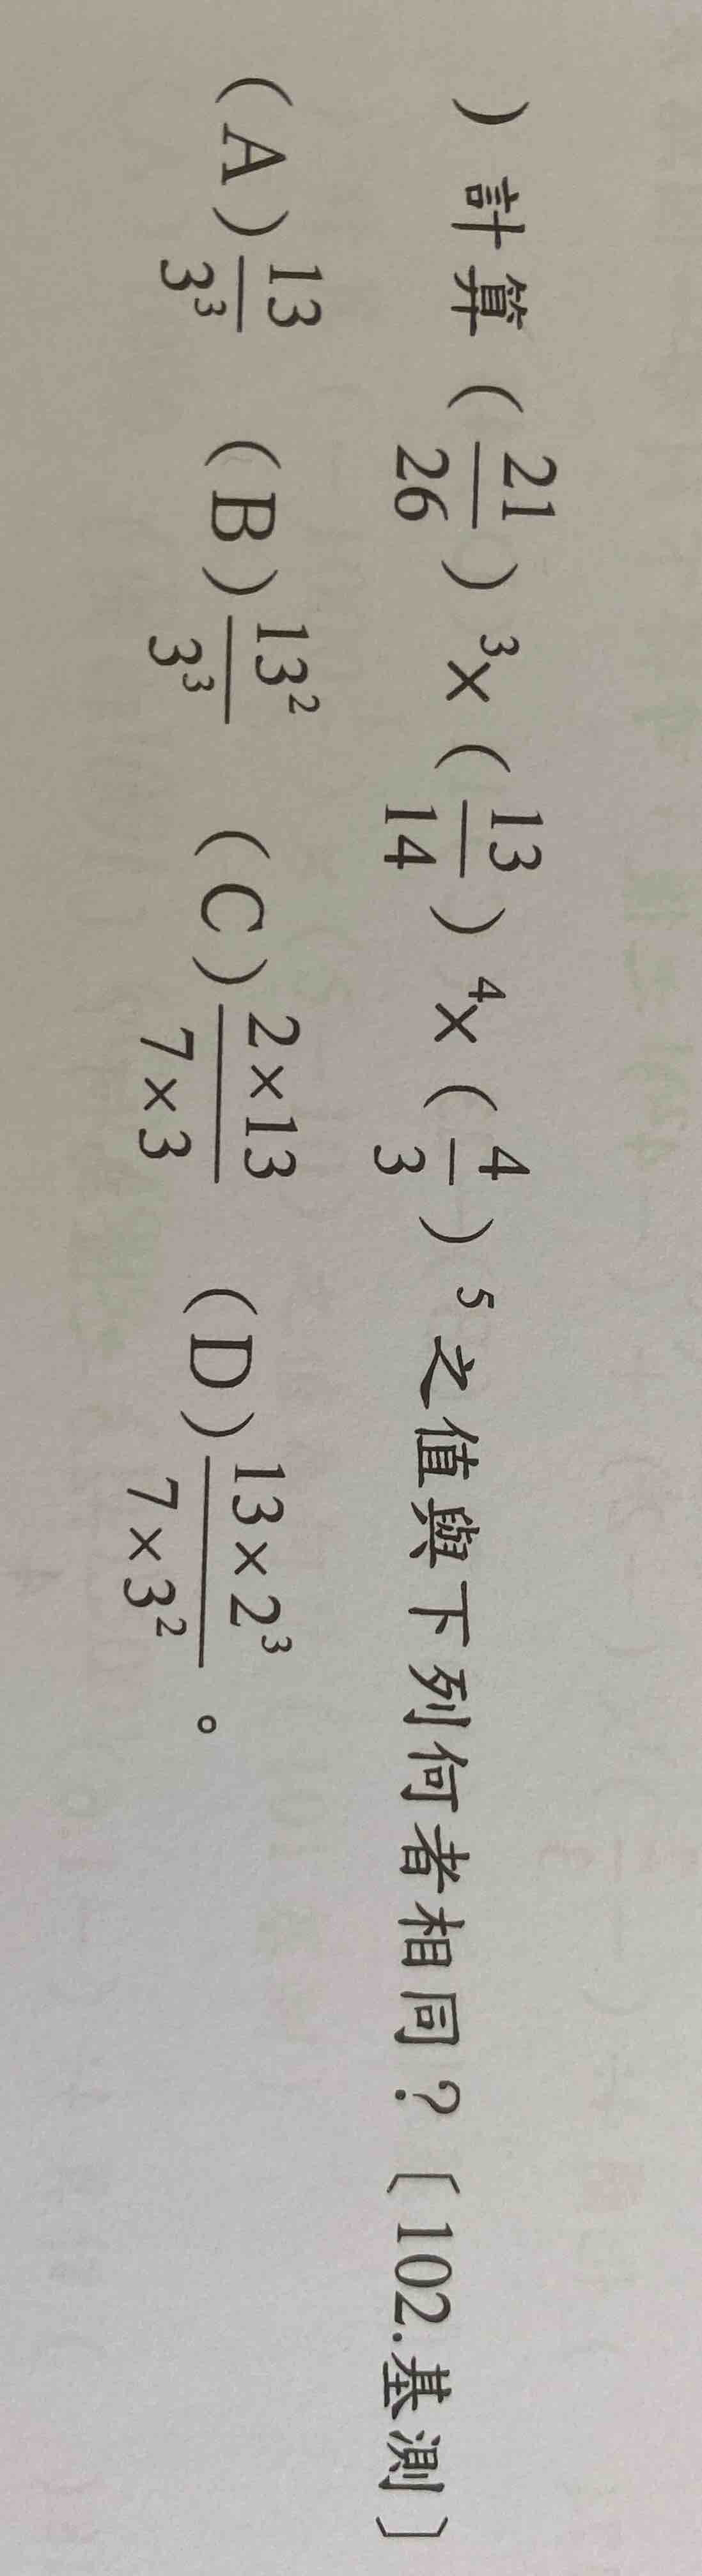 ）計算（21/26）³×（13/14）⁴×（4/3）⁵之值與下列何者相同？〔102.基測〕
（A）13/3³　（B）13²/3³　（C）2×13/7×3　（D）13×2³/7×3²。